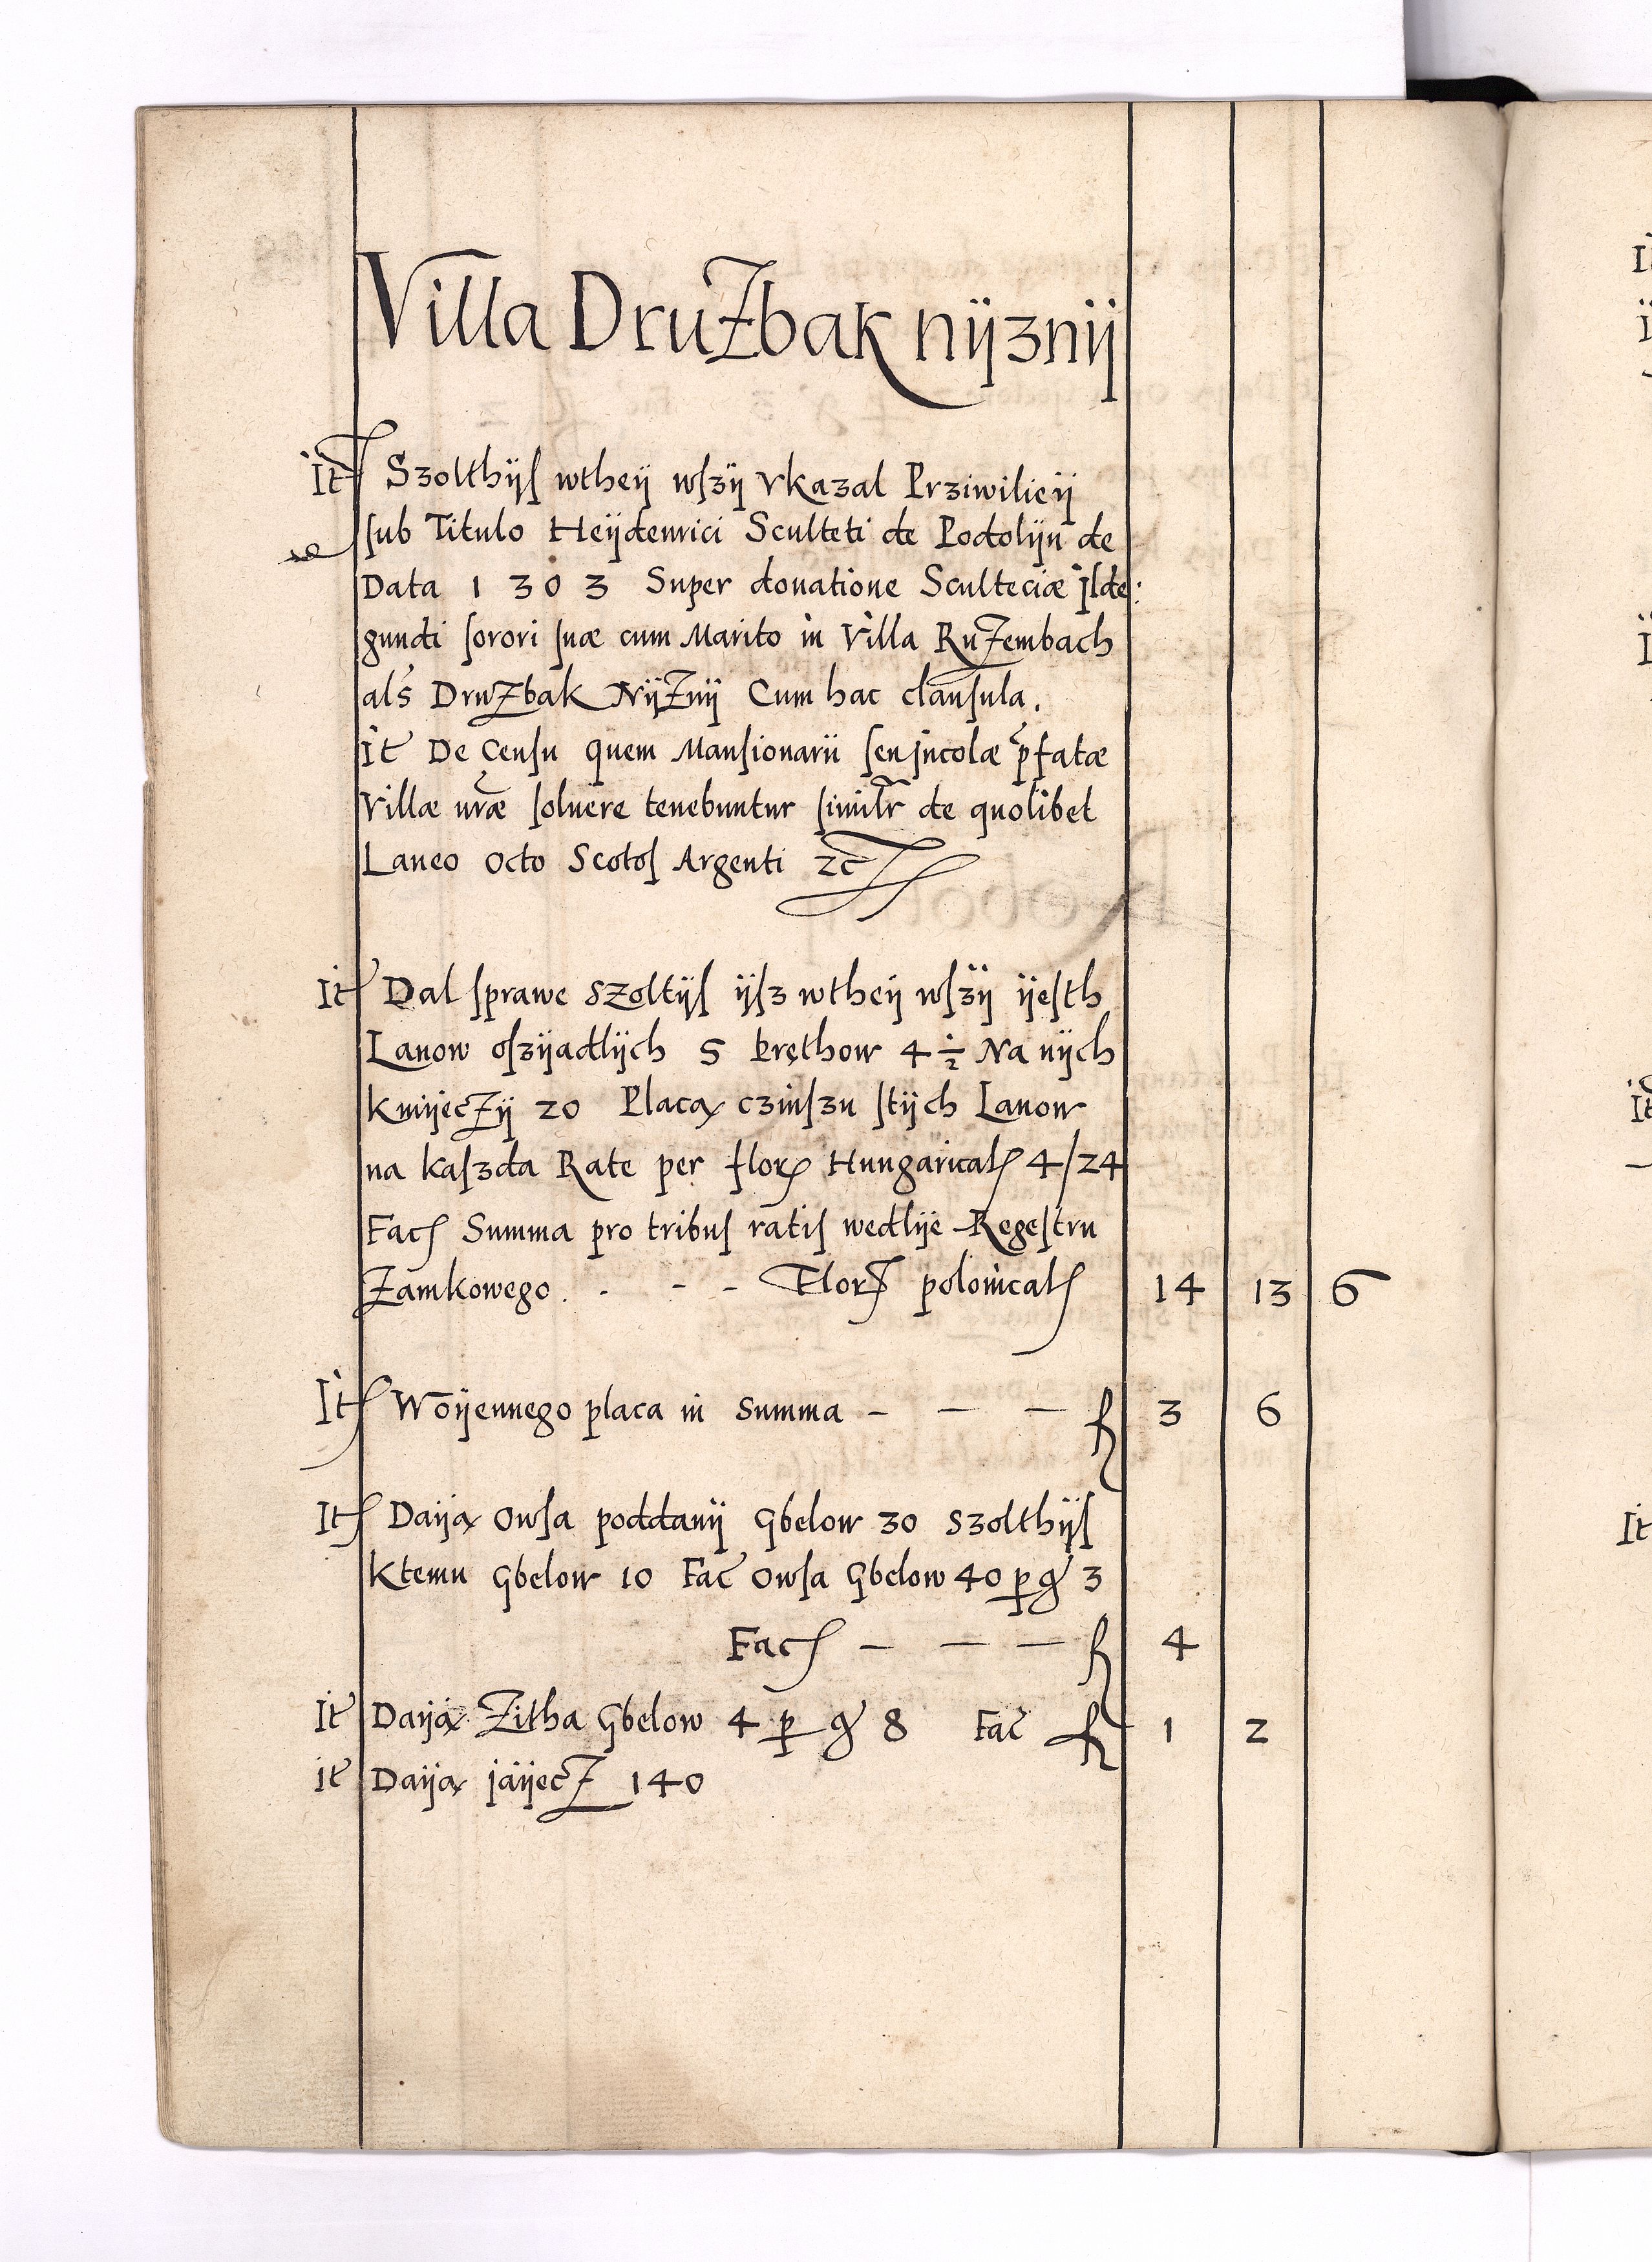 Villa Druzbak nijznij
It Szolthijs wtheij wszij Vkazal Prziwilieij
sub Titulo Heijdenrici Sculteti de Podolijn de
Data 1303 Super donatione Sculteciæ Ilde:
gundi sorori suæ cum Marito in Villa Ruzembach
als Druzbak Nijznij Cum hac clausula.
It De Censu quem Mansionarii seu jncolæ pfatæ
Villæ nræ soluere tenebuntur similr de quolibet
Laneo octo Scotos Argenti zc
It Dal sprawe szoltijs ijsz wtheij wszij ijesth
Lanow oszijadlijch 5 pręthow 4 1/2 Na nijch
kmijeczij 20 Placą czinszu stijch Lanow
na kaszda Rate per flor Hungarical 4/24
Fac Summa pro tribus ratis wedlije Regestru
Zamkowego . - - - Flor polonical 14 13 6
It Woijennego placa in summa - - - f 3 6
It Daiją owsa poddanij Gbelow 30 szolthijs
ktemu Gbelow 10 Fac owsa Gbelow 40 p g 3
Fac - - - f 4
It Daiją Zitha Gbelow 4 p g 8 Fac f 1 2
it Daiją jaijecz 140